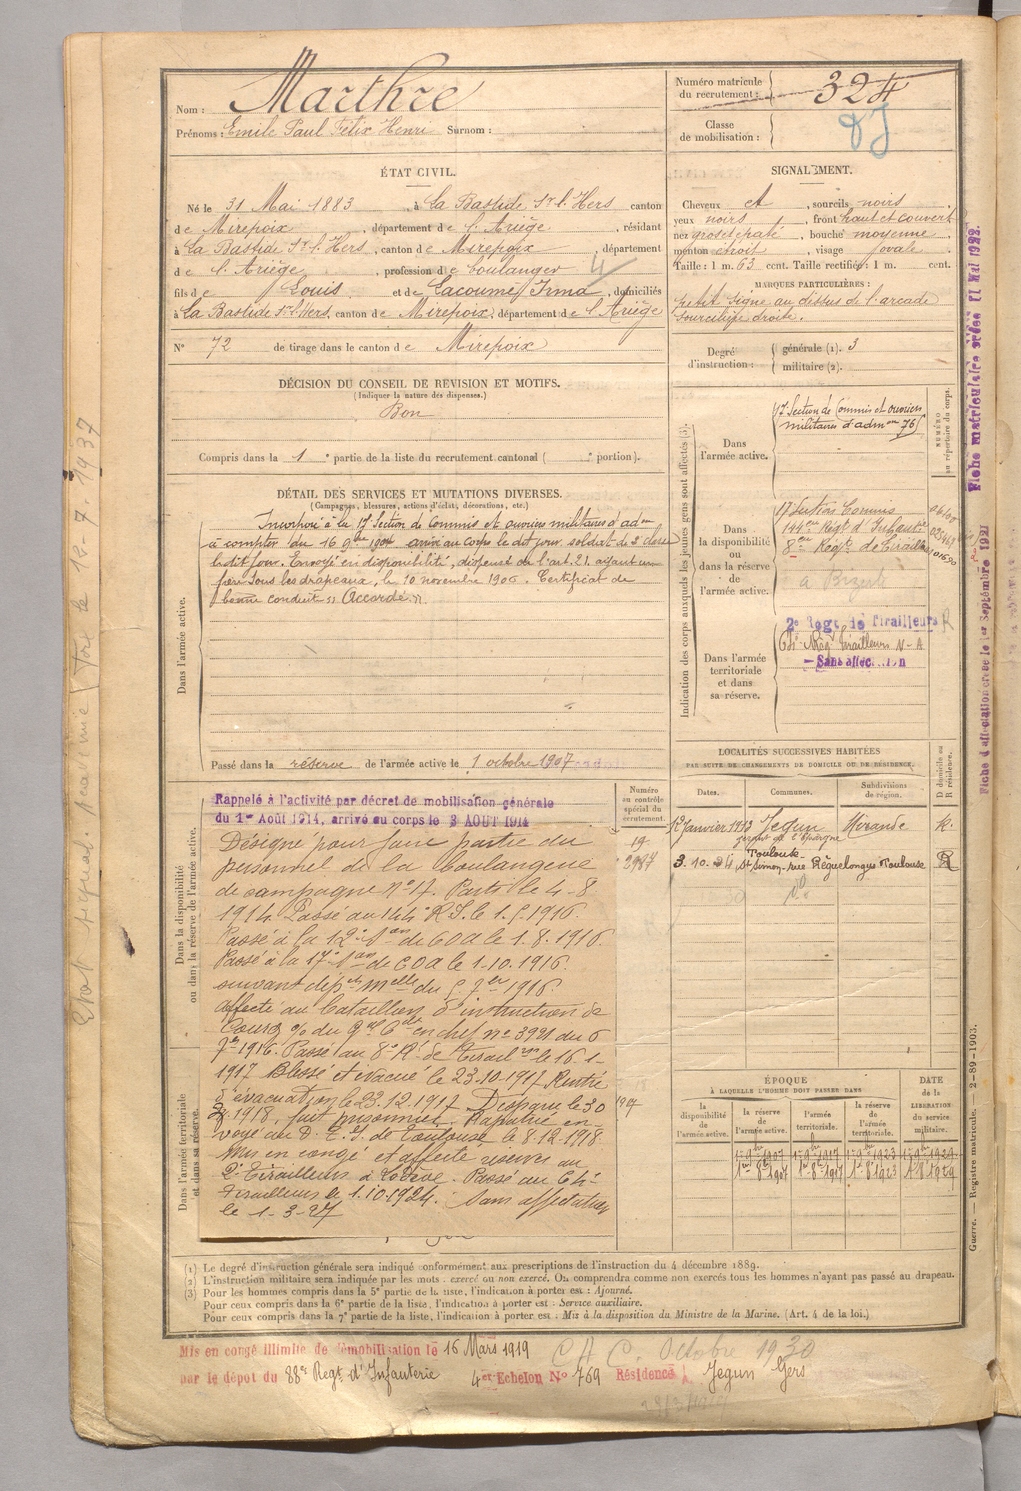 Nom : Marthre
Prénoms : Emile Paul Félix Henri Surnom :
Numéro matricule du recrutement : 324
Classe de mobilisation :
ÉTAT CIVIL.
Né le 31 Mai 1883, à La Bastide Sr l. Hers canton
de Mirepoix, département de l'Ariège, résidant
à La Bastide Sr l. Hers, canton de Mirepoix, département
de l'Ariège, profession de boulanger
fils de Louis et de Lacoume Irma, domiciliés
à La Bastide Sr l. Hers, canton de Mirepoix, département de l'Ariège
N° 72 de tirage dans le canton de Mirepoix
SIGNALEMENT.
Cheveux et, sourcils noirs,
yeux noirs, front haut et couvert
nez gros et paté, bouche moyenne
menton étroit, visage ovale
Taille : 1 m. 63 cent. Taille rectifiée : 1 m. cent.
MARQUES PARTICULIÈRES :
petit signe au dessus de l'arcade
sourcilière droite.
Degré d'instruction : générale (1). 3
militaire (2).
DÉCISION DU CONSEIL DE REVISION ET MOTIFS.
(Indiquer la nature des dispenses.)
Bon
Compris dans la 1e partie de la liste du recrutement cantonal ( e portion).
DÉTAIL DES SERVICES ET MUTATIONS DIVERSES.
(Campagnes, blessures, actions d'éclat, décorations, etc.)
Dans l'armée active.
Incorporé à la 17e Section de Commis et ouvriers militaires d'adon
à compter du 16 9bre 1904 arrivé au corps le dit jour, soldat de 2e classe
le dit jour. Envoyé en disponibilité, dispensé de l'art. 21. ayant un
frère sous les drapeaux, le 10 novembre 1906. Certificat de
bonne conduite "Accordé".
Passé dans la réserve de l'armée active le 1 octobre 1907
Indication des corps auxquels les jeunes gens sont affectés (3).
Dans l'armée active.
17 Section de Commis et ouvriers
militaires d'admon 76
NUMÉRO au répertoire du corps.
Dans la disponibilité ou dans la réserve de l'armée active.
17 Section Commis
144eme Régt d'Infanterie
8eme Régt de Tirailleurs
a Bizerte
Dans l'armée territoriale et dans sa réserve.
2e Regt de Tirailleurs R
64e Rég Tirailleurs N-A
Sans affectation
LOCALITÉS SUCCESSIVES HABITÉES
PAR SUITE DE CHANGEMENTS DE DOMICILE OU DE RÉSIDENCE.
Dates. Communes. Subdivisions de région. D domicile ou R résidence.
12 Janvier 1913 Jegun Mirande R.
3.10.24 Toulouse
St Simon rue Réquelongue Toulouse R
Dans la disponibilité ou dans la réserve de l'armée active.
Numéro au contrôle spécial du recrutement.
Rappelé à l'activité par décret de mobilisation générale
du 1er Août 1914, arrivé au corps le 3 AOUT 1914
Désigné pour faire partie du
personnel de la boulangerie
de campagne n° 17. Parti le 4-8
1914. Passé au 144e R.I. le 1.5.1916.
Passé à la 12e Son de COA le 1.8.1916.
Passé à la 17e Son de COA le 1-10.1916.
suivant dépes melle du 5 7bre 1916.
affecté au Bataillon d'instruction de
Courg % du Gal Cdt en chef n° 3991 du 6
7bre 1916. Passé au 8e Rt de Tirailrs le 16-1-
1917 Blessé et évacué le 23.10.1917. Rentré
d'évacuation le 23.12.1917. Disparu le 30
1918, fait prisonnier. Rapatrié en-
voyé au D. T. I. de Toulouse le 8.12.1918.
Mis en congé et affecté réserves au
2e Tirailleurs à Lodève. Passé au 64e
Tirailleurs le 1.10.1924. Sans affectation
le 1-3-27
Dans l'armée territoriale et dans sa réserve.
ÉPOQUE
À LAQUELLE L'HOMME DOIT PASSER DANS
la disponibilité de l'armée active.
la réserve de l'armée active.
l'armée territoriale.
la réserve de l'armée territoriale.
DATE de la LIBÉRATION du service militaire.
(1) Le degré d'instruction générale sera indiqué conformément aux prescriptions de l'instruction du 4 décembre 1889.
(2) L'instruction militaire sera indiquée par les mots : exercé ou non exercé. On comprendra comme non exercés tous les hommes n'ayant pas passé au drapeau.
(3) Pour les hommes compris dans la 5e partie de la liste, l'indication à porter est : Ajourné.
Pour ceux compris dans la 6e partie de la liste, l'indication à porter est : Service auxiliaire.
Pour ceux compris dans la 7e partie de la liste, l'indication à porter est : Mis à la disposition du Ministre de la Marine. (Art. 4 de la loi.)
Mis en congé illimité de démobilisation le 16 Mars 1919
par le dépôt du 88e Regt d'Infanterie 4er Echelon N° 769 Résidence Jegun Gers
C H C. Octobre 1930
Fiche matriculaire créée 11 Mai 1922.
Fiche d'affectation créée le 1er Septembre 1921
Guerre. — Registre matricule. — 2-89-1903.